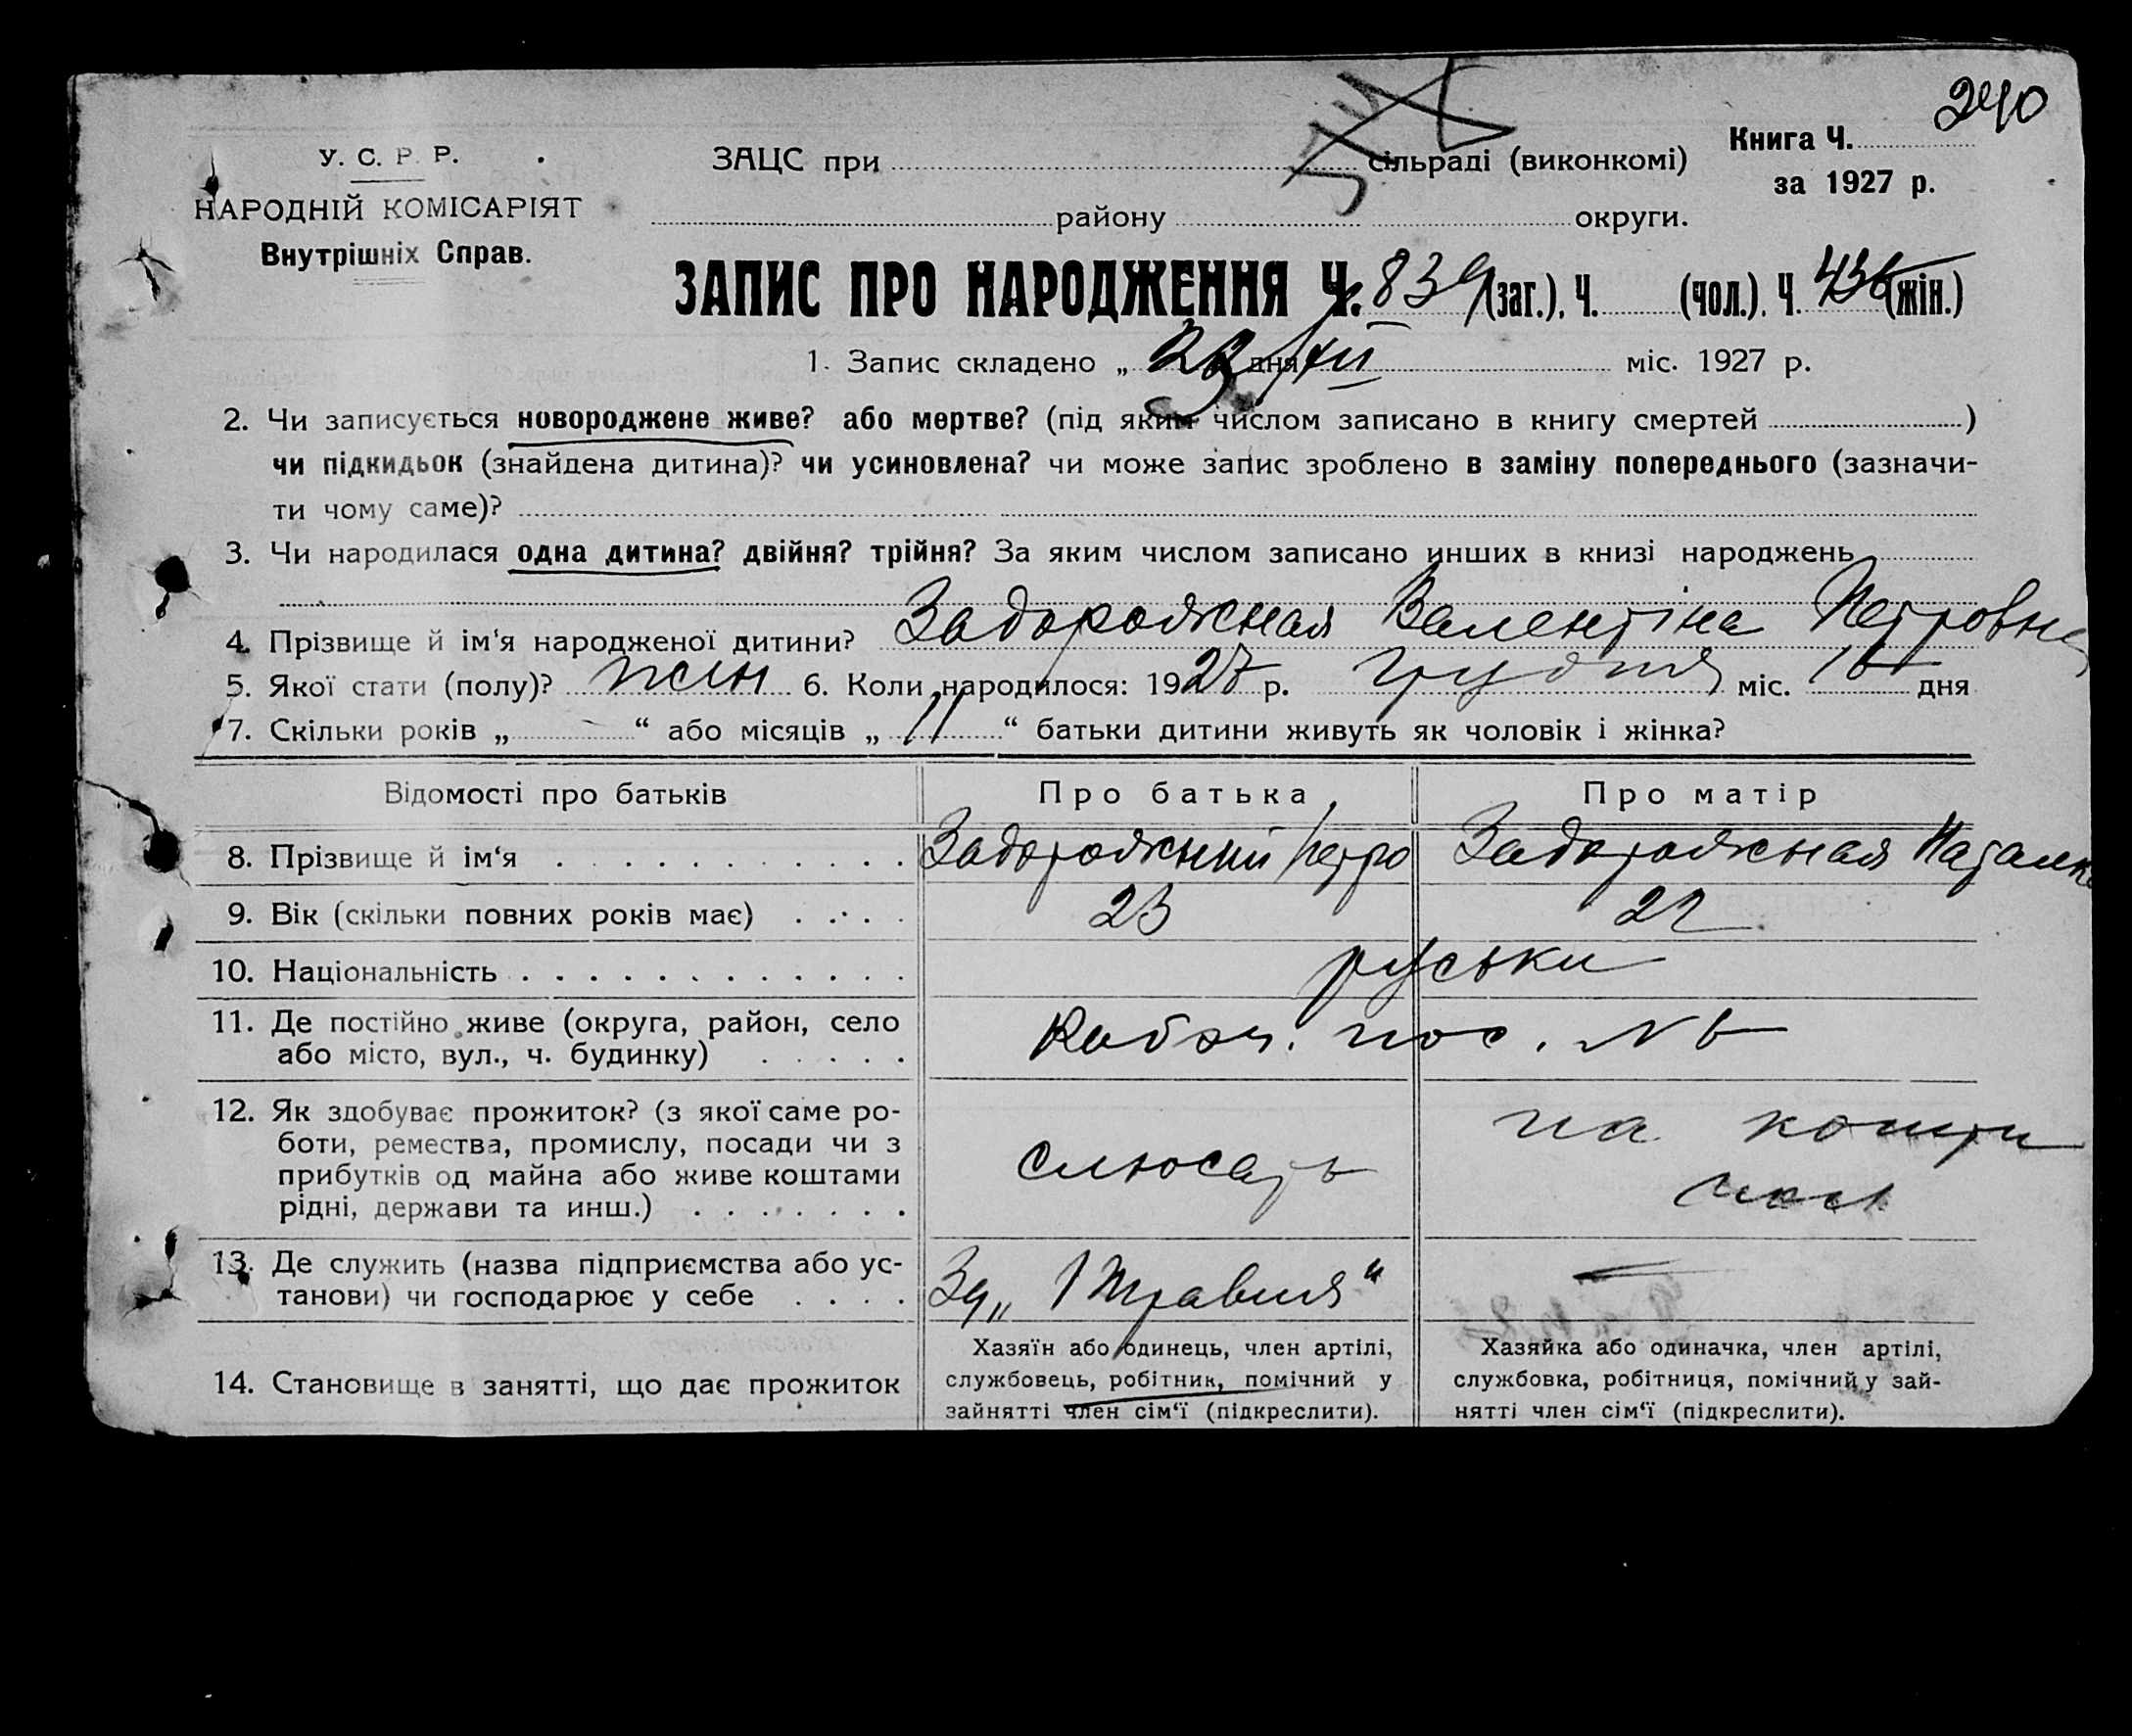 240
У. С. Р. Р.
НАРОДНІЙ КОМІСАРІЯТ
Внутрішніх Справ.
ЗАЦС при сільраді (виконкомі)
району округи.
Книга Ч.
за 1927 р.
ЗАПИС ПРО НАРОДЖЕННЯ Ч. 839 (заг.), Ч. (чол.), Ч. 436 (жін.)
1. Запис складено „ дня XII міс. 1927 р.
2. Чи записується новороджене живе? або мертве? (під яким числом записано в книгу смертей )
чи підкидьок (знайдена дитина)? чи усиновлена? чи може запис зроблено в заміну попереднього (зазначи-
ти чому саме)?
3. Чи народилася одна дитина? двійня? трійня? За яким числом записано инших в книзі народжень
4. Прізвище й ім'я народженої дитини? Задорожная Валентіна Петровна
5. Якої стати (полу)? жін 6. Коли народилося: 1927 р. грудня міс. дня
7. Скільки років „ — “ або місяців „ 11 “ батьки дитини живуть як чоловік і жінка?
Відомості про батьків Про батька Про матір
8. Прізвище й ім'я Задорожний Петро Задорожная Наталка
9. Вік (скільки повних років має) 23 22
10. Національність руськи
11. Де постійно живе (округа, район, село
або місто, вул., ч. будинку) пос. №
12. Як здобуває прожиток? (з якої саме ро-
боти, ремества, промислу, посади чи з
прибутків од майна або живе коштами
рідні, держави та инш.)
слюсарь
на кошти
13. Де служить (назва підприємства або ус-
танови) чи господарює у себе
Зд „1 Травня“ —
14. Становище в занятті, що дає прожиток
Хазяїн або одинець, член артілі,
службовець, робітник, помічний у
зайнятті член сім'ї (підкреслити).
Хазяйка або одиначка, член артілі,
службовка, робітниця, помічний у зай-
нятті член сім'ї (підкреслити).